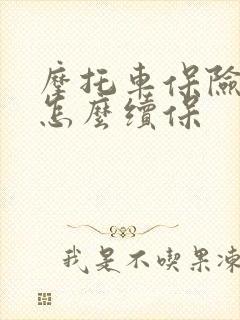 摩托車保險
怎麼續保
我是不喫果凍